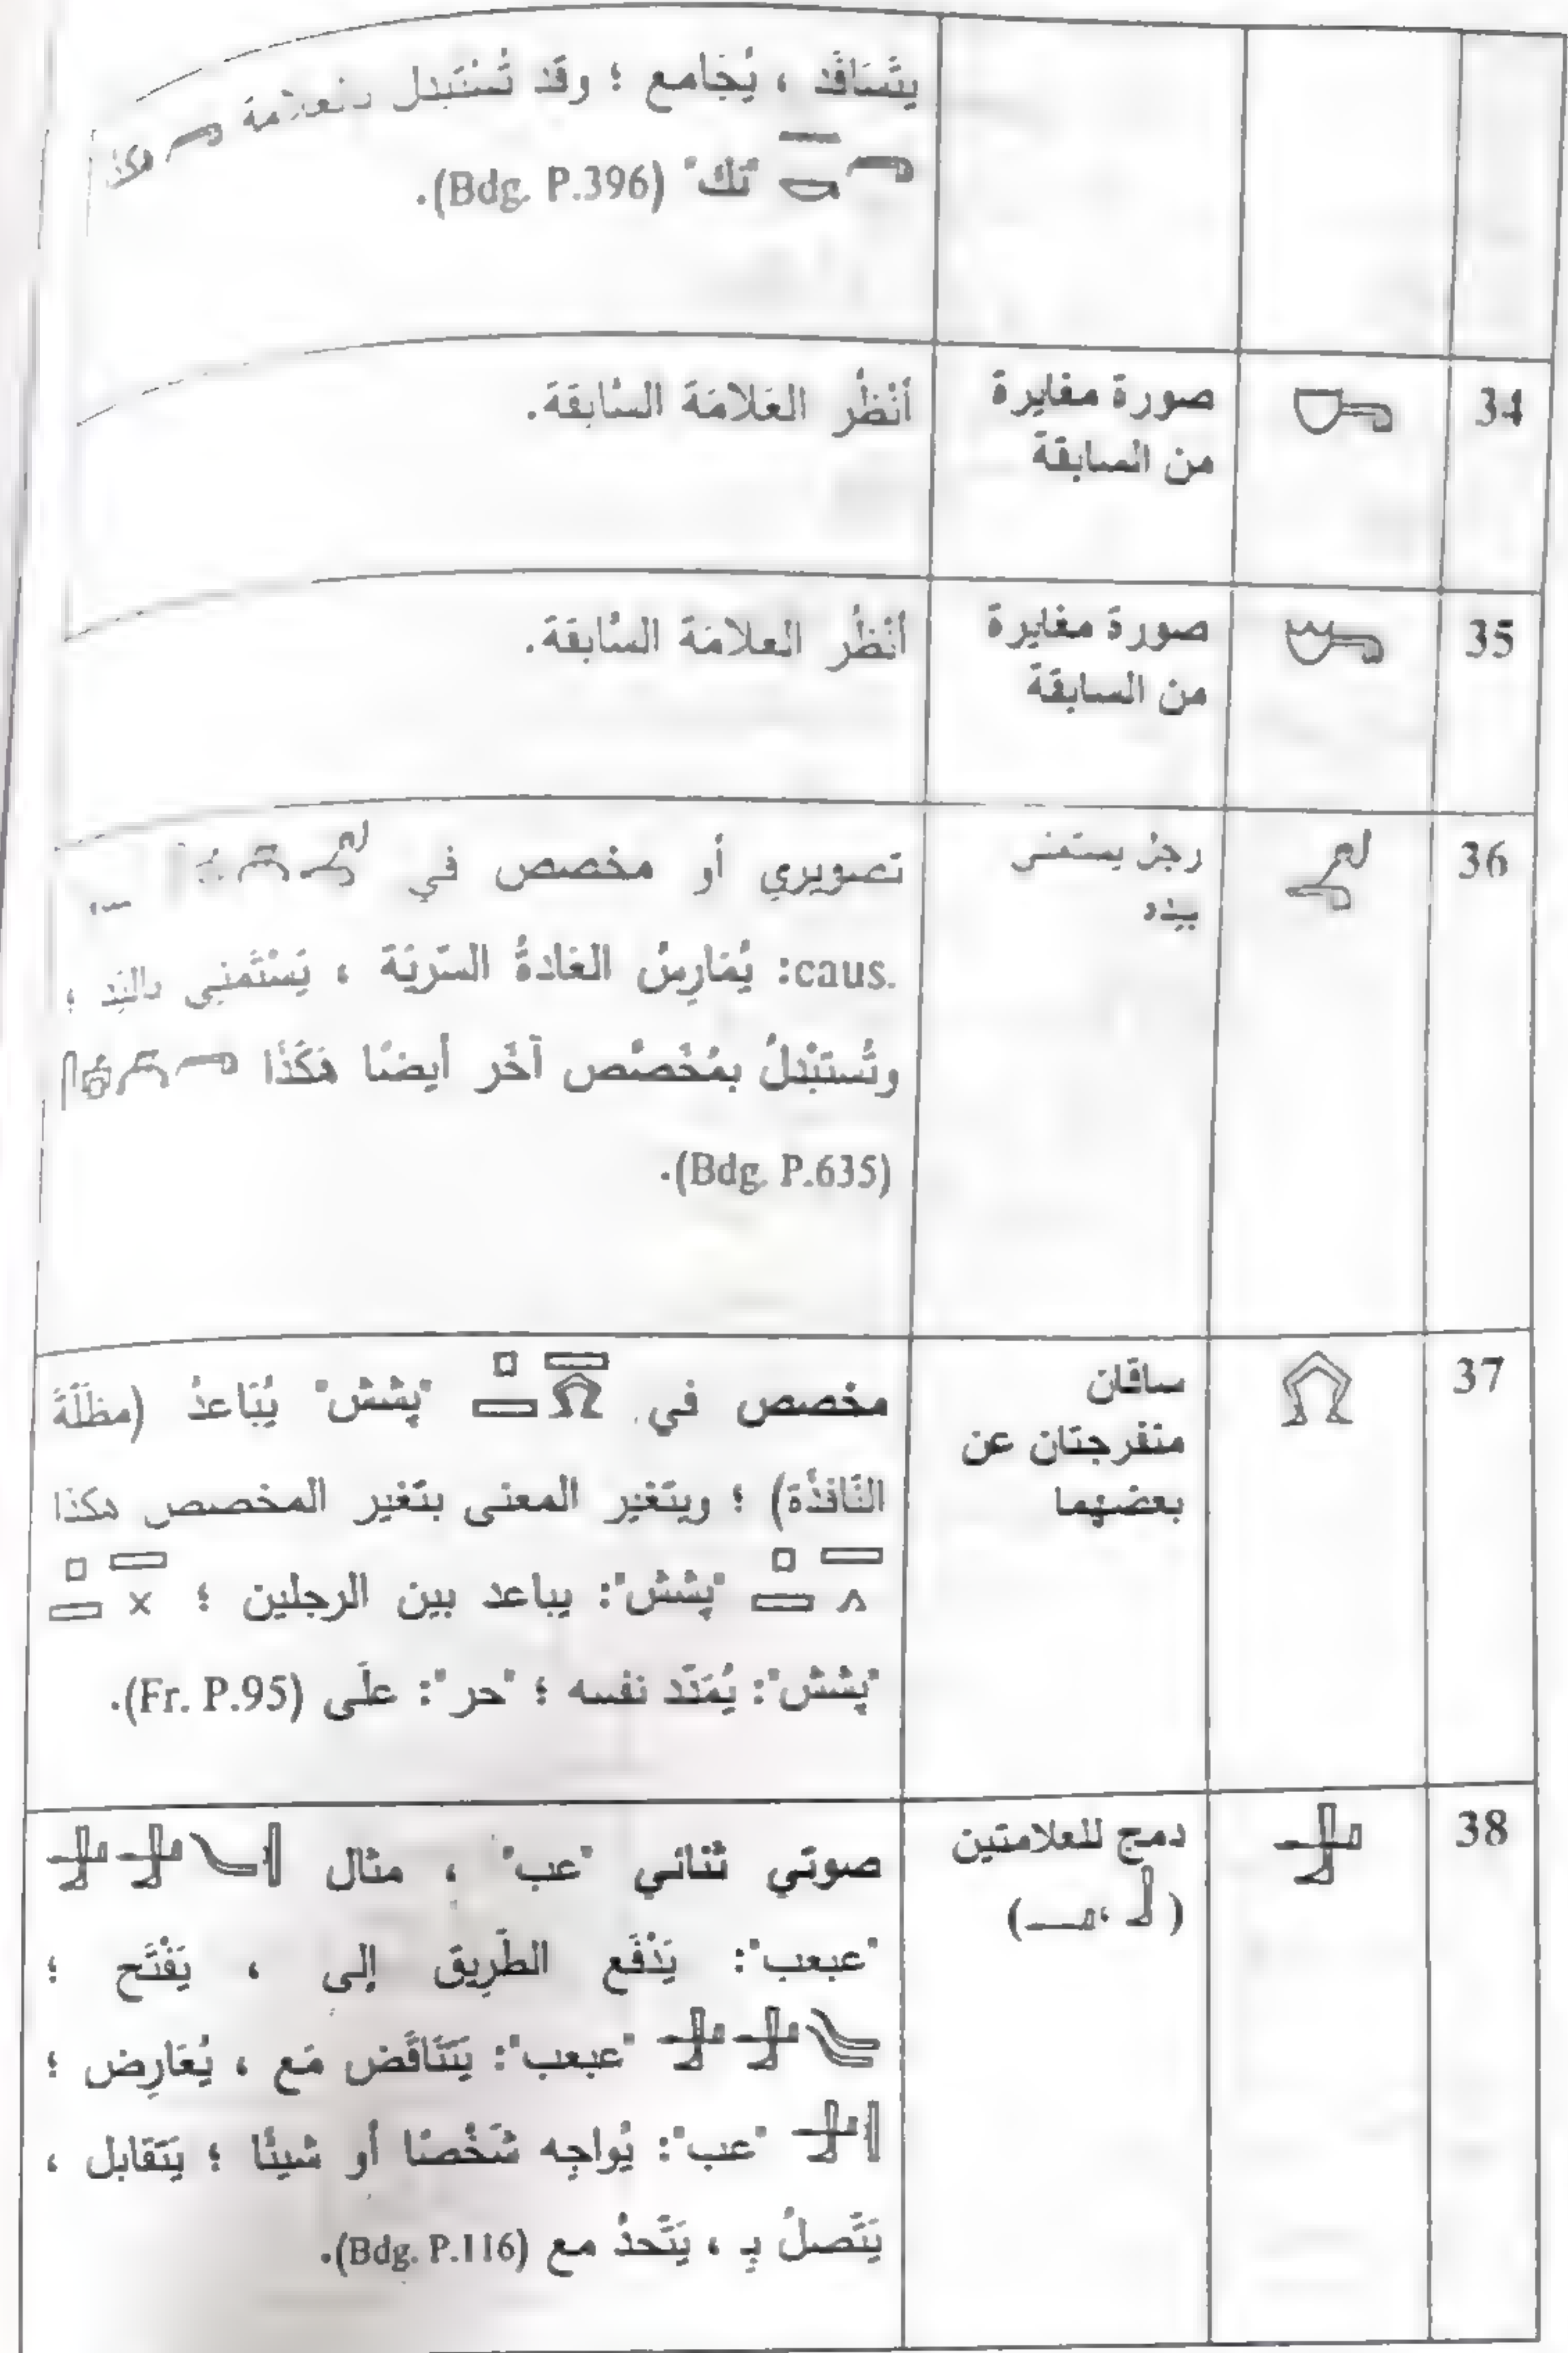 يتَسَافَد ، يُجَامع ؛ وقَد تُسْتَبدل بالعلامة 𓂺 هكذا
𓈖𓂺𓎡 "نك" (Bdg. P.396).
34
صورة مغايرة
من السابقة
أنْظُر العَلامَة السَّابقَة.
35
صورة مغايرة
من السابقة
أنْظُر العلامَة السَّابقَة.
36
رجلٌ يستمنى
بيده
تصويري أو مخصص في
caus.: يُمَارِسُ العَادةُ السّريَة ، يَسْتَمْنِي باليَد ؛
وتُستَبْدلُ بمُخَصَّص آخَر أيضًا هَكَذَا
(Bdg. P.635).
37
ساقان
منفرجتان عن
بعضهما
مخصص في "پشش" يُبَاعدُ (مظلّةَ
النَّافذَة) ؛ ويتغير المعنى بتغير المخصص هكذا
"پشش": يباعد بين الرجلين ؛
"پشش": يُمَدّد نفسه ؛ "حر": علَى (Fr. P.95).
38
دمج للعلامتين
(𓃀 ، 𓂝)
صوتي ثنائي "عب" ، مثال
"عبعب": يَدْفَع الطَّرِيق إلى ، يَفْتَح ؛
"عبعب": يَتَنَاقَض مَع ، يُعَارِض ؛
"عب": يُواجِه شَخْصًا أو شيئًا ؛ يَتَقابل ،
يَتَّصلُ بِ ، يَتَّحدُ مع (Bdg. P.116).